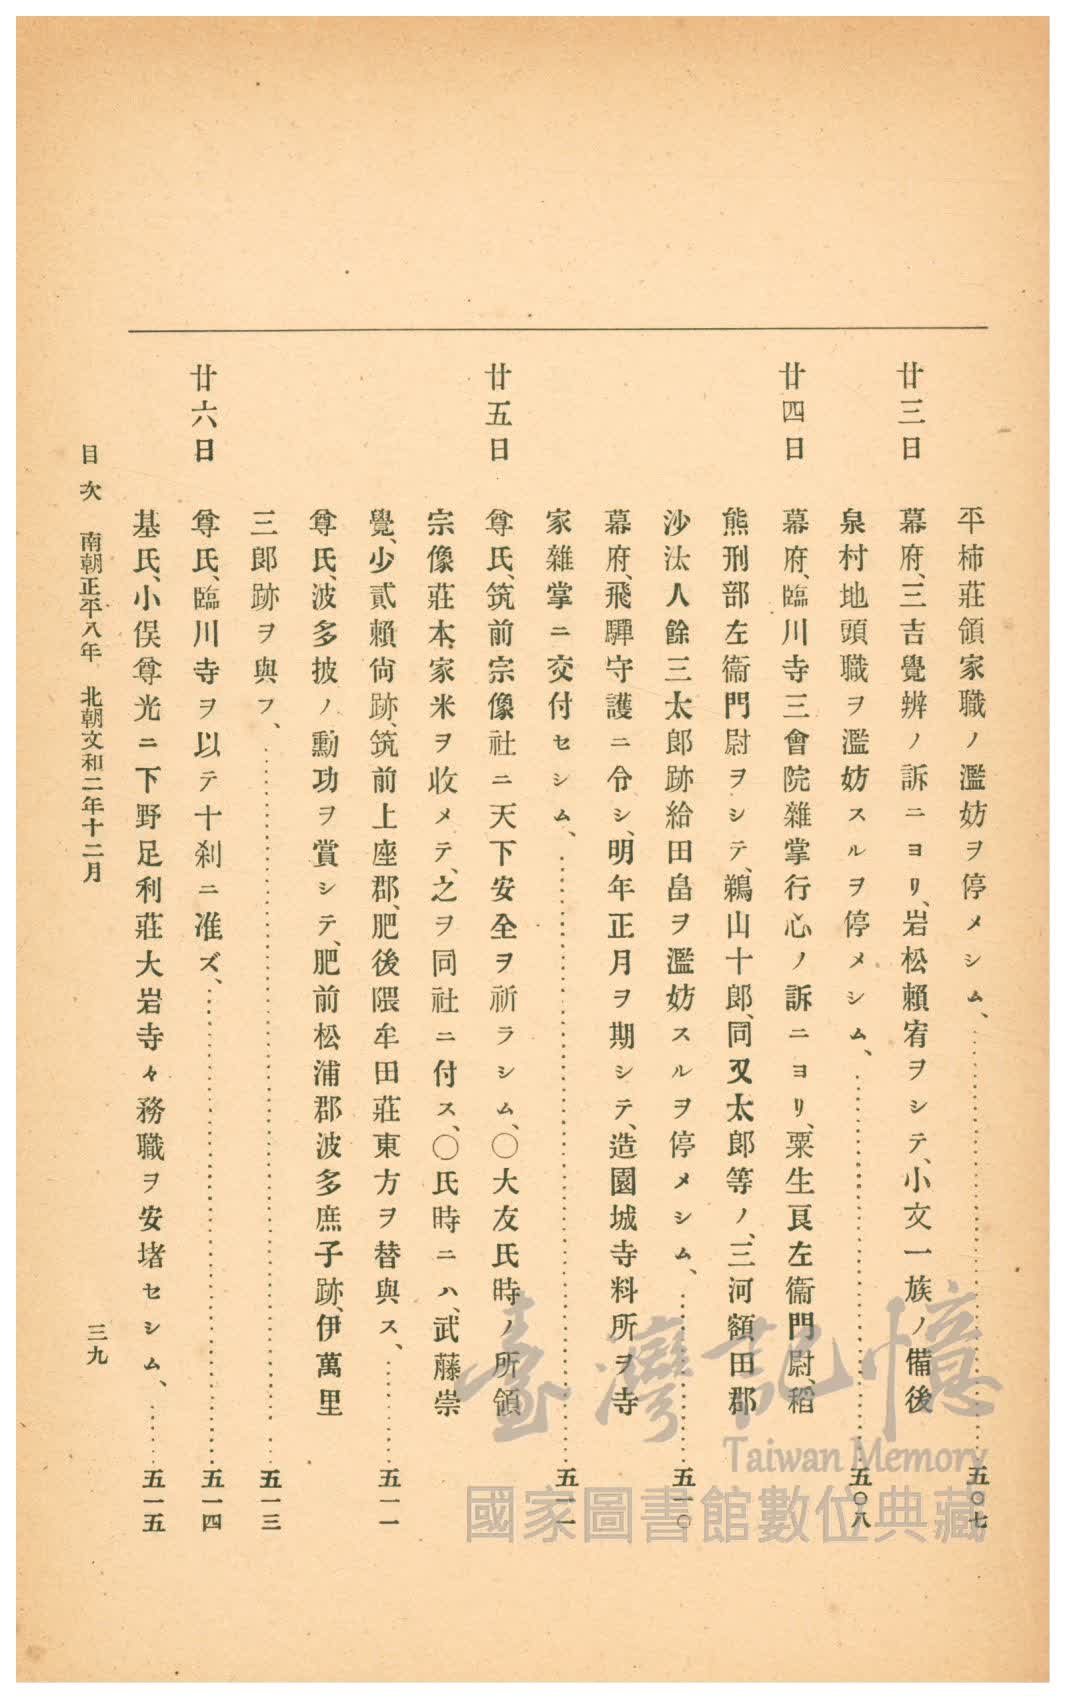 平柿莊領家職ノ濫妨ヲ停メシム、…………五〇七
廿三日 幕府、三吉覺辨ノ訴ニヨリ、岩松賴宥ヲシテ、小文一族ノ備後
泉村地頭職ヲ濫妨スルヲ停メシム、…………五〇八
廿四日 幕府、臨川寺三會院雜掌行心ノ訴ニヨリ、粟生良左衞門尉、稻
熊刑部左衞門尉ヲシテ、鵜山十郎、同又太郎等ノ、三河額田郡
沙汰人餘三太郎跡給田畠ヲ濫妨スルヲ停メシム、…………五一〇
幕府、飛驒守護ニ令シ、明年正月ヲ期シテ、造園城寺料所ヲ寺
家雜掌ニ交付セシム、…………五一一
廿五日 尊氏、筑前宗像社ニ天下安全ヲ祈ラシム、〇大友氏時ノ所領
宗像莊本家米ヲ收メテ、之ヲ同社ニ付ス、〇氏時ニハ、武藤崇
覺、少貳賴尙跡、筑前上座郡、肥後隈牟田莊東方ヲ替與ス、…………五一一
尊氏、波多披ノ勳功ヲ賞シテ、肥前松浦郡波多庶子跡、伊萬里
三郎跡ヲ與フ、…………五一三
廿六日 尊氏、臨川寺ヲ以テ十刹ニ准ズ、…………五一四
基氏、小俣尊光ニ下野足利莊大岩寺々務職ヲ安堵セシム、…………五一五
目次 南朝正平八年 北朝文和二年十二月 三九
臺灣記憶
Taiwan Memory
國家圖書館數位典藏